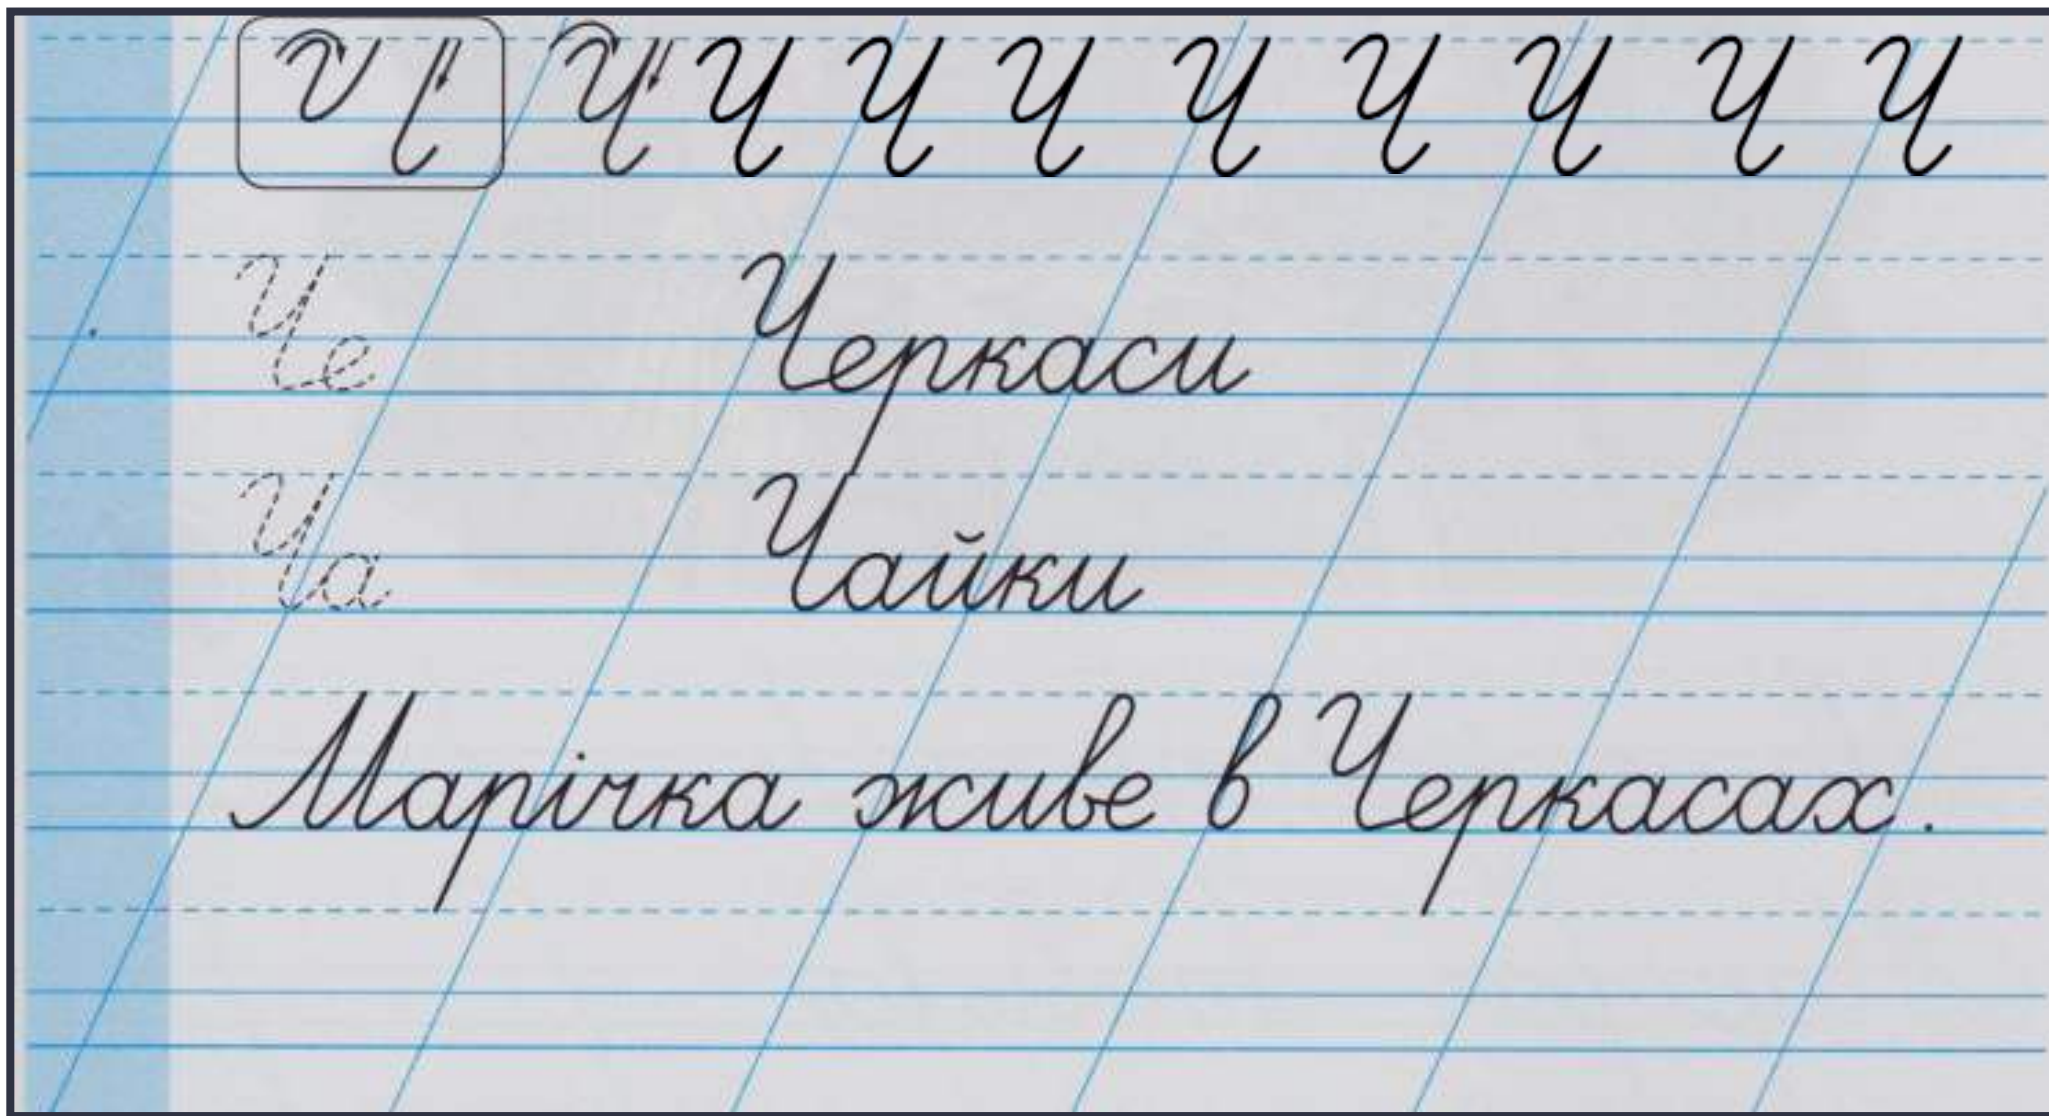 Ч Ч Ч Ч Ч Ч Ч Ч Ч
Че Черкаси
Ча Чайки
Марічка живе в Черкасах.